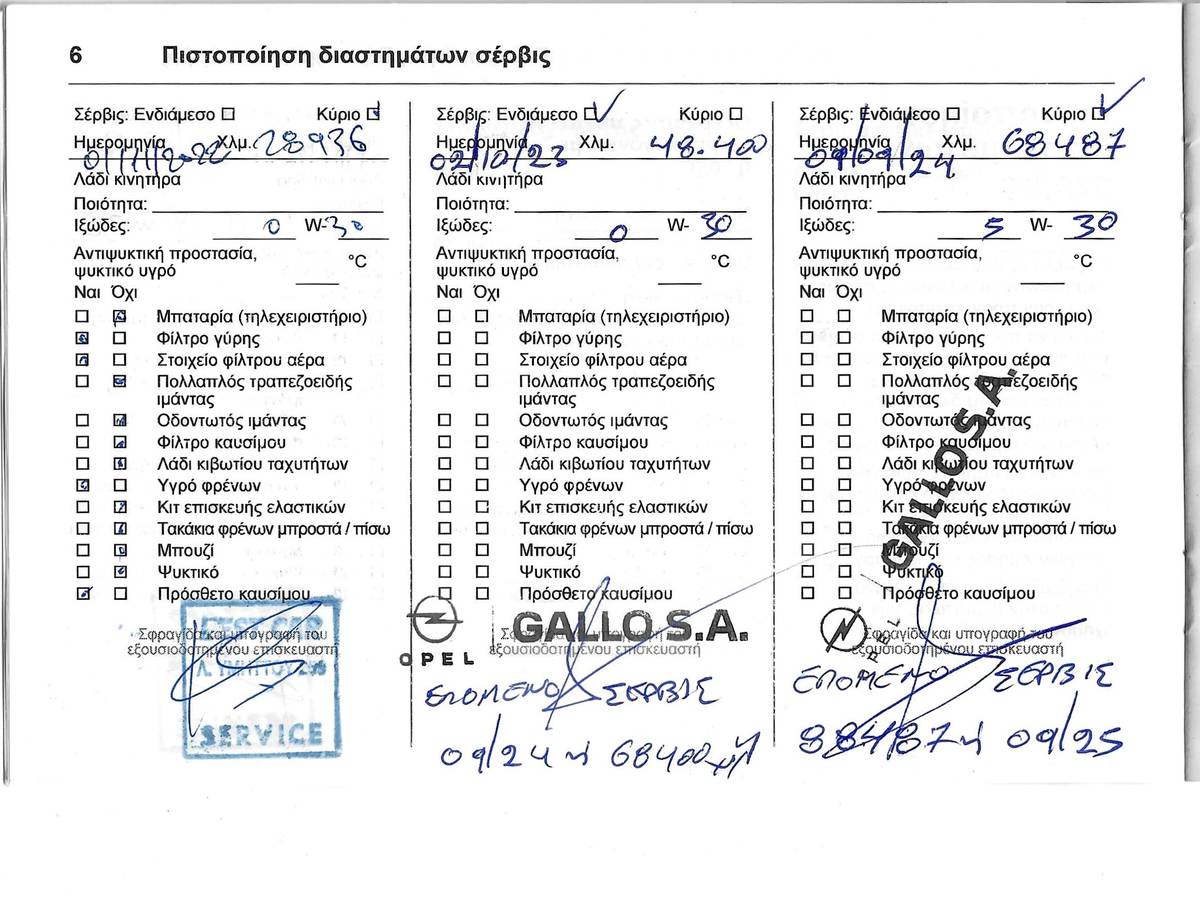 6 Πιστοποίηση διαστημάτων σέρβις
Σέρβις: Ενδιάμεσο ☐ Κύριο ☑
Ημερομηνία 01/11/2022 Χλμ. 28936
Λάδι κινητήρα
Ποιότητα:
Ιξώδες: 0 W-30
Αντιψυκτική προστασία, °C
ψυκτικό υγρό
Ναι Όχι
☐ ☑ Μπαταρία (τηλεχειριστήριο)
☑ ☐ Φίλτρο γύρης
☑ ☐ Στοιχείο φίλτρου αέρα
☐ ☑ Πολλαπλός τραπεζοειδής
ιμάντας
☐ ☑ Οδοντωτός ιμάντας
☐ ☑ Φίλτρο καυσίμου
☐ ☑ Λάδι κιβωτίου ταχυτήτων
☑ ☐ Υγρό φρένων
☐ ☑ Κιτ επισκευής ελαστικών
☐ ☑ Τακάκια φρένων μπροστά / πίσω
☐ ☑ Μπουζί
☐ ☑ Ψυκτικό
☑ ☐ Πρόσθετο καυσίμου
Σφραγίδα και υπογραφή του
εξουσιοδοτημένου επισκευαστή
SERVICE
Σέρβις: Ενδιάμεσο ☑ Κύριο ☐
Ημερομηνία 02/10/23 Χλμ. 48.400
Λάδι κινητήρα
Ποιότητα:
Ιξώδες: 0 W- 30
Αντιψυκτική προστασία, °C
ψυκτικό υγρό
Ναι Όχι
☐ ☐ Μπαταρία (τηλεχειριστήριο)
☐ ☐ Φίλτρο γύρης
☐ ☐ Στοιχείο φίλτρου αέρα
☐ ☐ Πολλαπλός τραπεζοειδής
ιμάντας
☐ ☐ Οδοντωτός ιμάντας
☐ ☐ Φίλτρο καυσίμου
☐ ☐ Λάδι κιβωτίου ταχυτήτων
☐ ☐ Υγρό φρένων
☐ ☐ Κιτ επισκευής ελαστικών
☐ ☐ Τακάκια φρένων μπροστά / πίσω
☐ ☐ Μπουζί
☐ ☐ Ψυκτικό
☐ ☐ Πρόσθετο καυσίμου
Σφραγίδα και υπογραφή του
εξουσιοδοτημένου επισκευαστή
OPEL GALLO S.A.
ΕΠΟΜΕΝΟ ΣΕΡΒΙΣ
09/24 ή 68400 χλ
Σέρβις: Ενδιάμεσο ☐ Κύριο ☑
Ημερομηνία 09/09/24 Χλμ. 68487
Λάδι κινητήρα
Ποιότητα:
Ιξώδες: 5 W- 30
Αντιψυκτική προστασία, °C
ψυκτικό υγρό
Ναι Όχι
☐ ☐ Μπαταρία (τηλεχειριστήριο)
☐ ☐ Φίλτρο γύρης
☐ ☐ Στοιχείο φίλτρου αέρα
☐ ☐ Πολλαπλός τραπεζοειδής
ιμάντας
☐ ☐ Οδοντωτός ιμάντας
☐ ☐ Φίλτρο καυσίμου
☐ ☐ Λάδι κιβωτίου ταχυτήτων
☐ ☐ Υγρό φρένων
☐ ☐ Κιτ επισκευής ελαστικών
☐ ☐ Τακάκια φρένων μπροστά / πίσω
☐ ☐ Μπουζί
☐ ☐ Ψυκτικό
☐ ☐ Πρόσθετο καυσίμου
Σφραγίδα και υπογραφή του
εξουσιοδοτημένου επισκευαστή
OPEL GALLO S.A.
ΕΠΟΜΕΝΟ ΣΕΡΒΙΣ
88487 ή 09/25